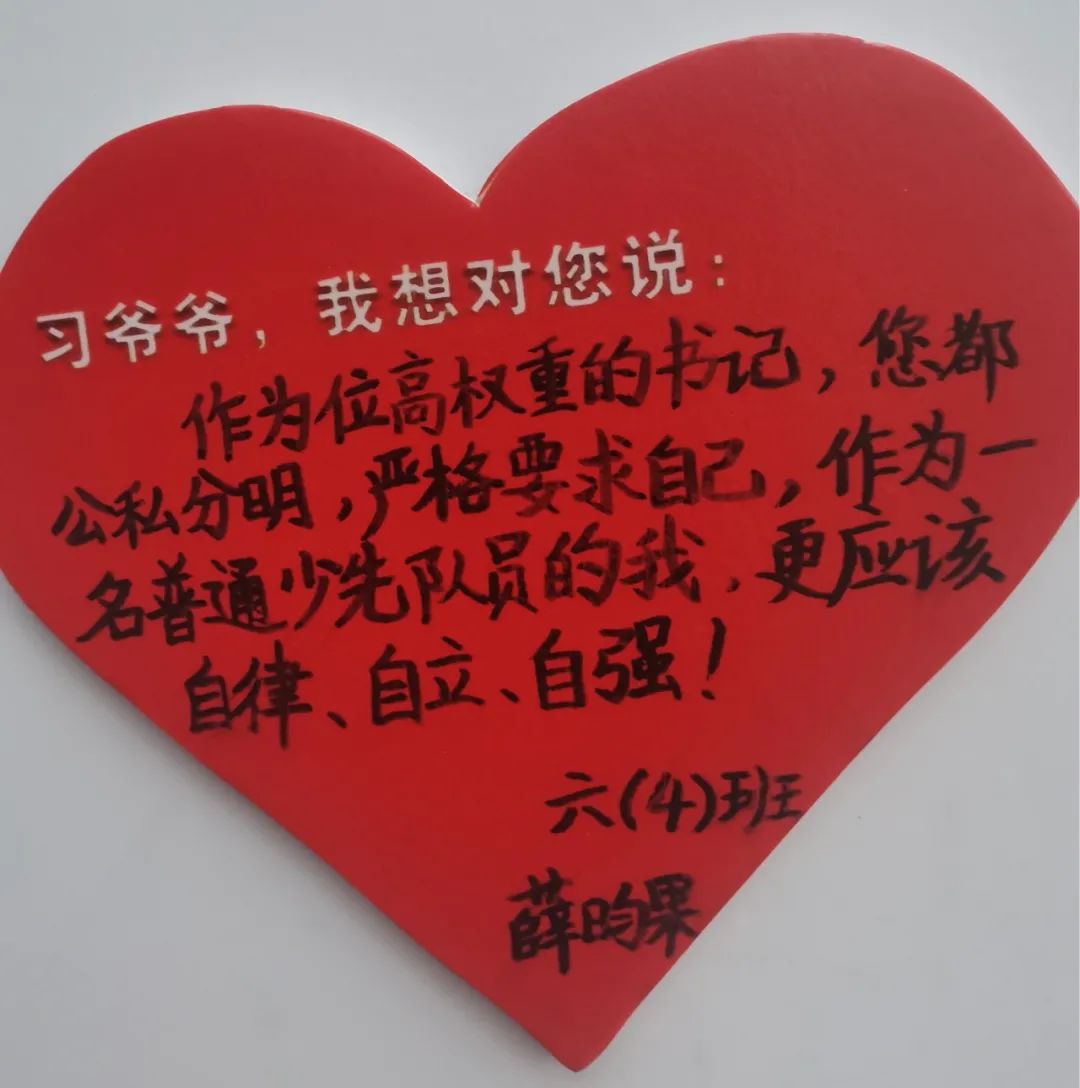 习爷爷，我想对您说：
作为位高权重的书记，您都
公私分明，严格要求自己，作为一
名普通少先队员的我，更应该
自律、自立、自强！
六(4)班
薛昀果